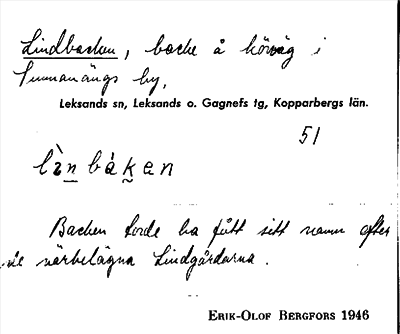 Lindbacken, backe å körväg i
Sunnanängs by,
Leksands sn, Leksands o. Gagnefs tg, Kopparbergs län.
51
lìnbàken
Backen torde ha fått sitt namn efter
de närbelägna Lindgårdarna.
ERIK-OLOF BERGFORS 1946